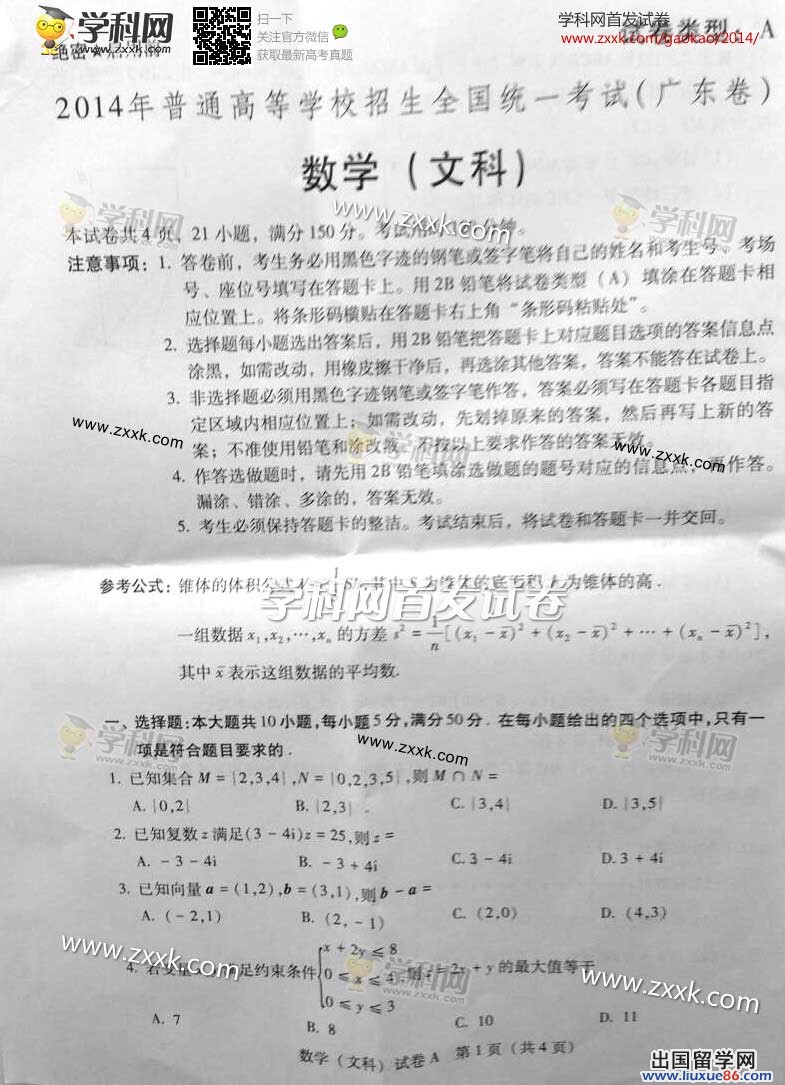 学科网
www.zxxk.com
扫一下
关注官方微信
获取最新高考真题
学科网首发试卷
www.zxxk.com/gaokao/2014/
绝密★启用前
试卷类型：A
2014年普通高等学校招生全国统一考试(广东卷)
数学(文科)
www.zxxk.com
学科网
学科网
本试卷共4页，21小题，满分150分。考试
注意事项：1. 答卷前，考生务必用黑色字迹的钢笔或签字笔将自己的姓名和考生号、考场
号、座位号填写在答题卡上。用2B铅笔将试卷类型（A）填涂在答题卡相
应位置上。将条形码横贴在答题卡右上角“条形码粘贴处”。
2. 选择题每小题选出答案后，用2B铅笔把答题卡上对应题目选项的答案信息点
涂黑，如需改动，用橡皮擦干净后，再选涂其他答案，答案不能答在试卷上。
3. 非选择题必须用黑色字迹钢笔或签字笔作答，答案必须写在答题卡各题目指
定区域内相应位置上；如需改动，先划掉原来的答案，然后再写上新的答
www.zxxk.com
学科网
案；不准使用铅笔和涂改液。不按以上要求作答的答案无效。
www.zxxk.com
4. 作答选做题时，请先用2B铅笔填涂选做题的题号对应的信息点，再作答。
漏涂、错涂、多涂的，答案无效。
5. 考生必须保持答题卡的整洁。考试结束后，将试卷和答题卡一并交回。
参考公式：锥体的体积公式 其中S为锥体的底面积，h为锥体的高.
学科网首发试卷
一组数据x₁,x₂,…,xₙ的方差s²=1/n[(x₁-x̄)²+(x₂-x̄)²+…+(xₙ-x̄)²],
其中x̄表示这组数据的平均数.
一、选择题：本大题共10小题,每小题5分,满分50分．在每小题给出的四个选项中,只有一
项是符合题目要求的．
www.zxxk.com
学科网
学科网
1. 已知集合M={2,3,4},N={0,2,3,5},则M∩N=
A. {0,2} B. {2,3} C. {3,4} D. {3,5}
2. 已知复数z满足(3-4i)z=25,则z=
A. -3-4i B. -3+4i C. 3-4i D. 3+4i
3. 已知向量a=(1,2),b=(3,1),则b-a=
A. (-2,1) B. (2,-1) C. (2,0) D. (4,3)
www.zxxk.com
学科网
www.zxxk.com
4. 若变量 足约束条件{x+2y≤8
0≤x≤4 则z=2x+y的最大值等于
0≤y≤3
A. 7 B. 8 C. 10 D. 11
数学（文科）试卷A 第1页（共4页）
出国留学网
www.liuxue86.com